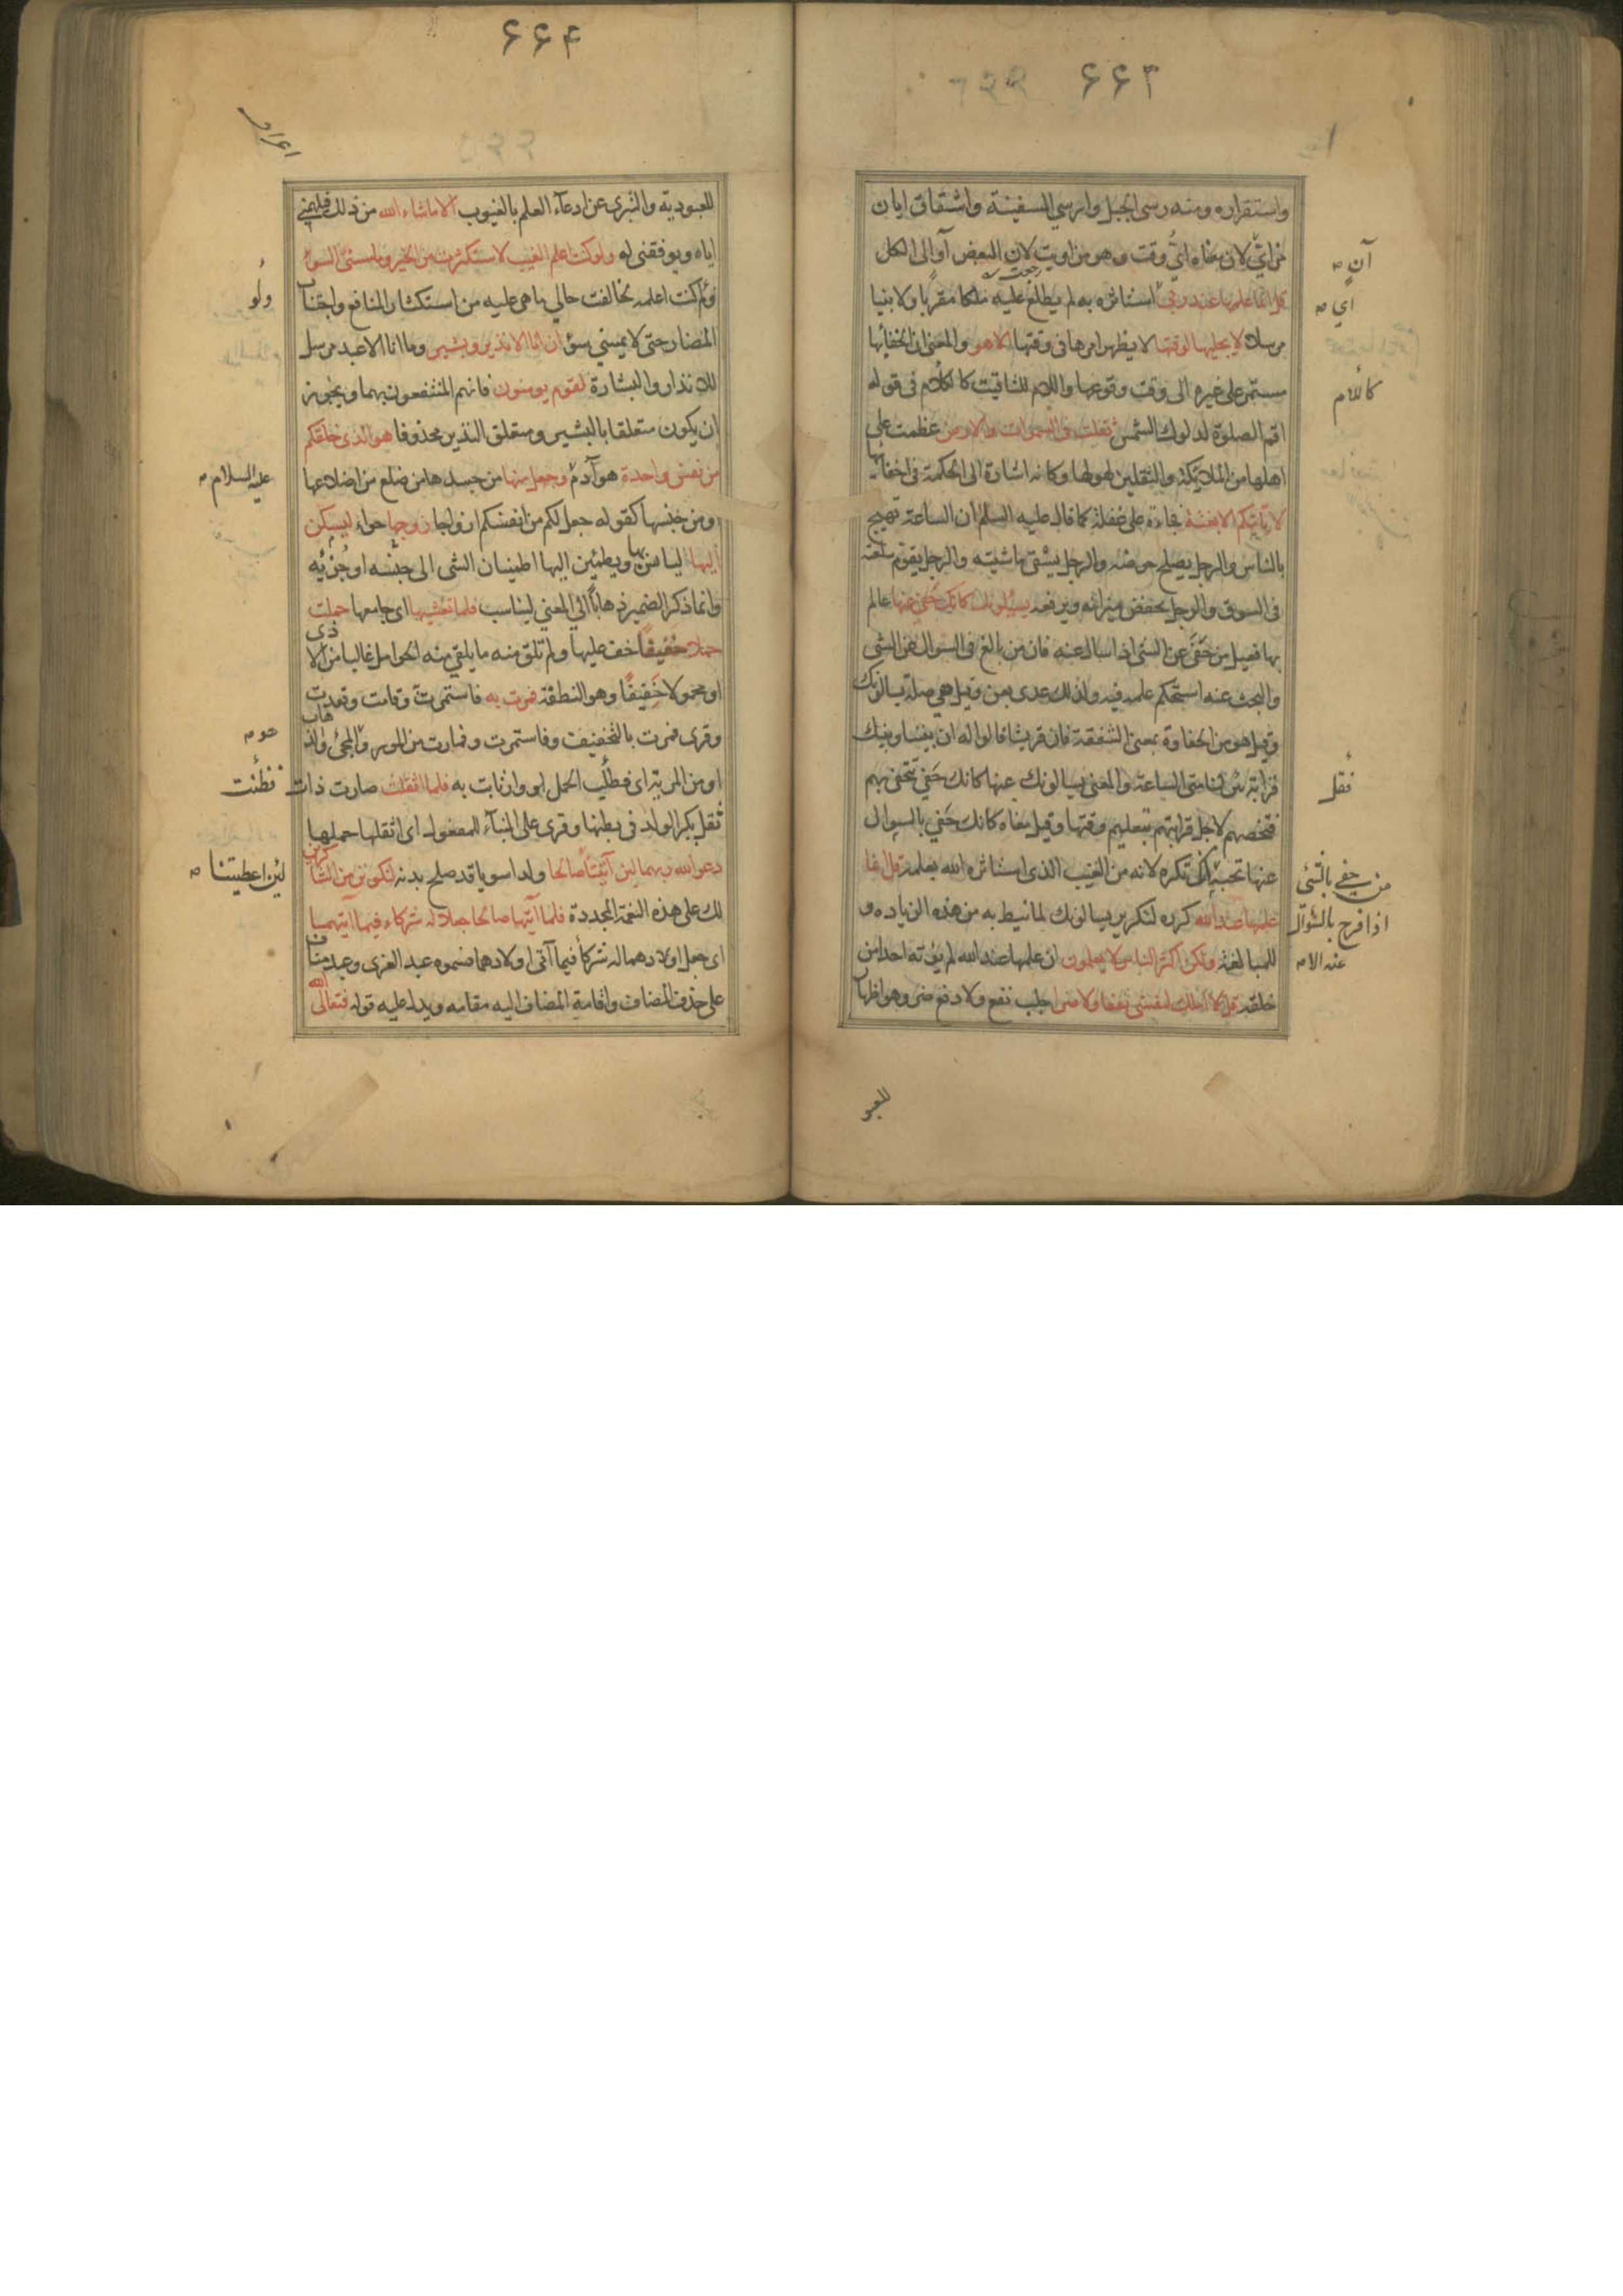 ۶۶۳
واستقراره ومنه رسى الجبل وارسي السفينة واشتقاق ايان
من ايّ لان معناه ايّ وقت وهو من اويت لان البعض آو الى الكل
قل انما علمها عند ربي استاثره به لم يطلع عليه ملكا مقربا ولا نبيا
مرسلا لا يجليها لوقتها لا يظهر امرها في وقتها الا هو والمعنى ان الخفا بها
مستمر على غيره الى وقت وقوعها واللام للتاقيت كاللام فى قوله
اقم الصلوة لدلوك الشمس ثقلت فى السموات والارض عظمت على
اهلها من الملائكة والثقلين لهولها وكانه اشارة الى الحكمة فى اخفائها
لا تاتيكم الا بغتة فجاءة على غفلة كما قال عليه السلم ان الساعة تهيج
بالناس والرجل يصلح حوضه والرجل يسقي ماشيته والرجل يقوم سلعته
فى السوق والرجل يخفض ميزانه ويرفعه يسئلونك كانك حفي عنها عالم
بها فعيل من حفى عن الشئ اذا سال عنه فان من بالغ فى السوال عن الشى
والبحث عنه استحكم علمه فيه ولذلك عدى بعن وقيل هي صلة يسالونك
وقيل هو من الحفاوة بمعنى الشفقة فان قريشا قالوا له ان بيننا وبينك
قرابة لنا متى الساعة والمعنى يسالونك عنها كانك حفي تتحفى بهم
فتخصهم لاجل قرابتهم بتعليم وقتها وقيل معناه كانك حفي بالسوال
عنها تحبه اي تكره لانه من الغيب الذى استاثره الله بعلمه قل انما
علمها عند الله كرره لتكرير يسالونك لما نيط به من هذه الزياده و
للمبالغة ولكن اكثر الناس لا يعلمون ان علمها عند الله لم يؤته احدا من
خلقه قل لا املك لنفسي نفعا ولا ضرا جلب نفع ولا دفع ضر وهو اظهار
آن
اي
كاللام
فقل
من حفي بالشئ
اذا فرح بالسؤال
عنه الا
للعبو
۶۶۴
للعبودية والتبرى عن ادعآء العلم بالغيوب الا ما شاء الله من ذلك فيلهمني
اياه ويوفقني له ولو كنت اعلم الغيب لاستكثرت من الخير وما مسني السوء
ولو كنت اعلمه لخالفت حالي ما هى عليه من استكثار المنافع واجتناب
المضار حتى لا يمسني سوء ان انا الا نذير وبشير وما انا الا عبد مرسل
للانذار والبشارة لقوم يومنون فانهم المنتفعون بهما ويجوز
ان يكون متعلقا بالبشير ومتعلق النذير محذوفا هو الذى خلقكم
من نفس واحدة هو آدم وجعل منها من جسدها من ضلع من اضلاعها
ومن جنسها كقوله جعل لكم من انفسكم ازواجا زوجها حواء ليسكن
اليها ليسانس بها ويطمئن اليها اطمينان الشى الى جنسه او جزئه
وانما ذكر الضمير ذهابا الى المعنى ليناسب فلما تغشيها اى جامعها حملت
حملا خفيفا خف عليها ولم تلق منه ما يلقى منه الحوامل غالبا من الاذى
او محمولا خفيفا وهو النطفة فمرت به فاستمرت وقامت وقعدت
وقرى فمرت بالتخفيف وفاستمرت وفمارت من المور والمجئ والذهاب
او من المرية اى فظنت الحمل او وارتابت به فلما اثقلت صارت ذات
ثقل بكبر الولد فى بطنها وقرى على البنآء للمفعول اى اثقلها حملها
دعوا الله ربهما لئن آتيتنا صالحا ولدا سويا قد صلح بدنه لنكونن من الشاكرين
لك على هذه النعمة المجددة فلما آتيهما صالحا جعلا له شركاء فيما آتيهما
اى جعل اولادهما له شركأ فيما آتى اولادهما فسموه عبد العزى وعبد مناف
على حذف المضاف واقامة المضاف اليه مقامه ويدل عليه قوله فتعالى الله
اعراف
ولو
عليه السلام
هو
فظنت
لئن اعطيتنا